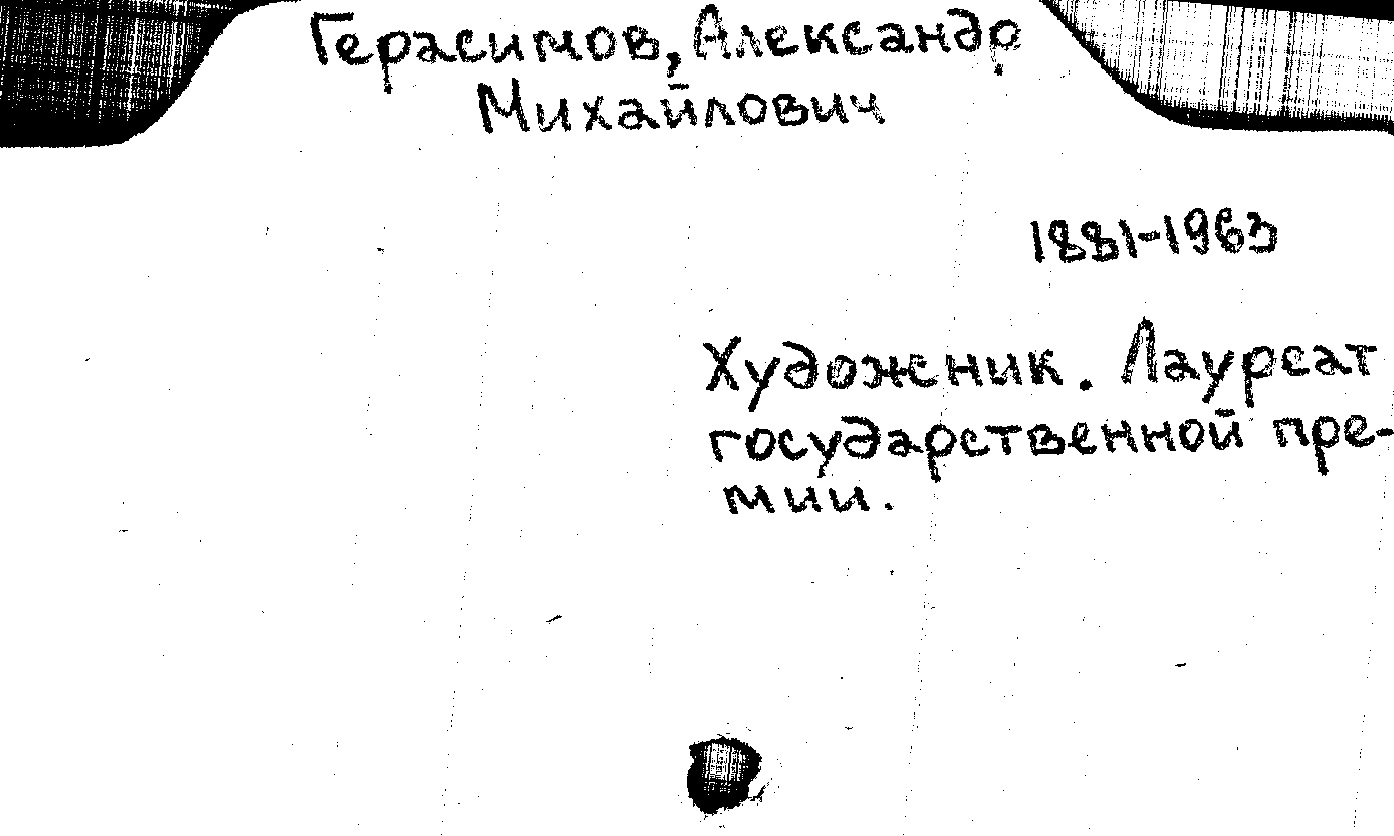 Герасимов, Александр
Михайлович
1881-1963
Художник. Лауреат
государственной пре-
мии.